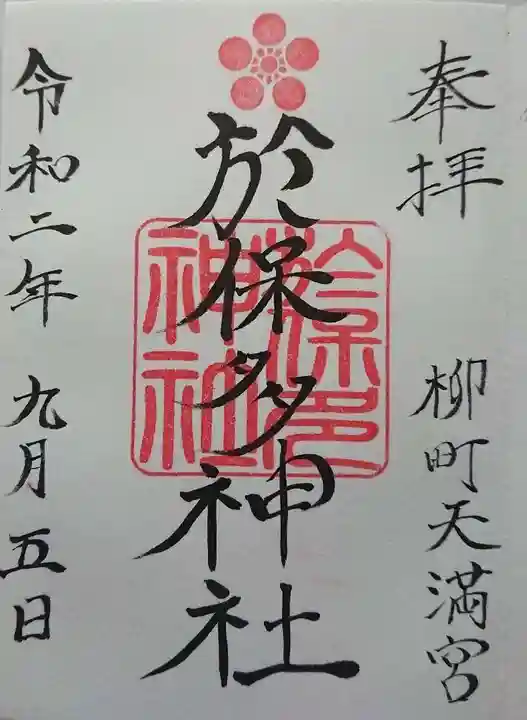 奉拝
柳町天満宮
於保多神社
於保多
神社
令和二年 九月五日